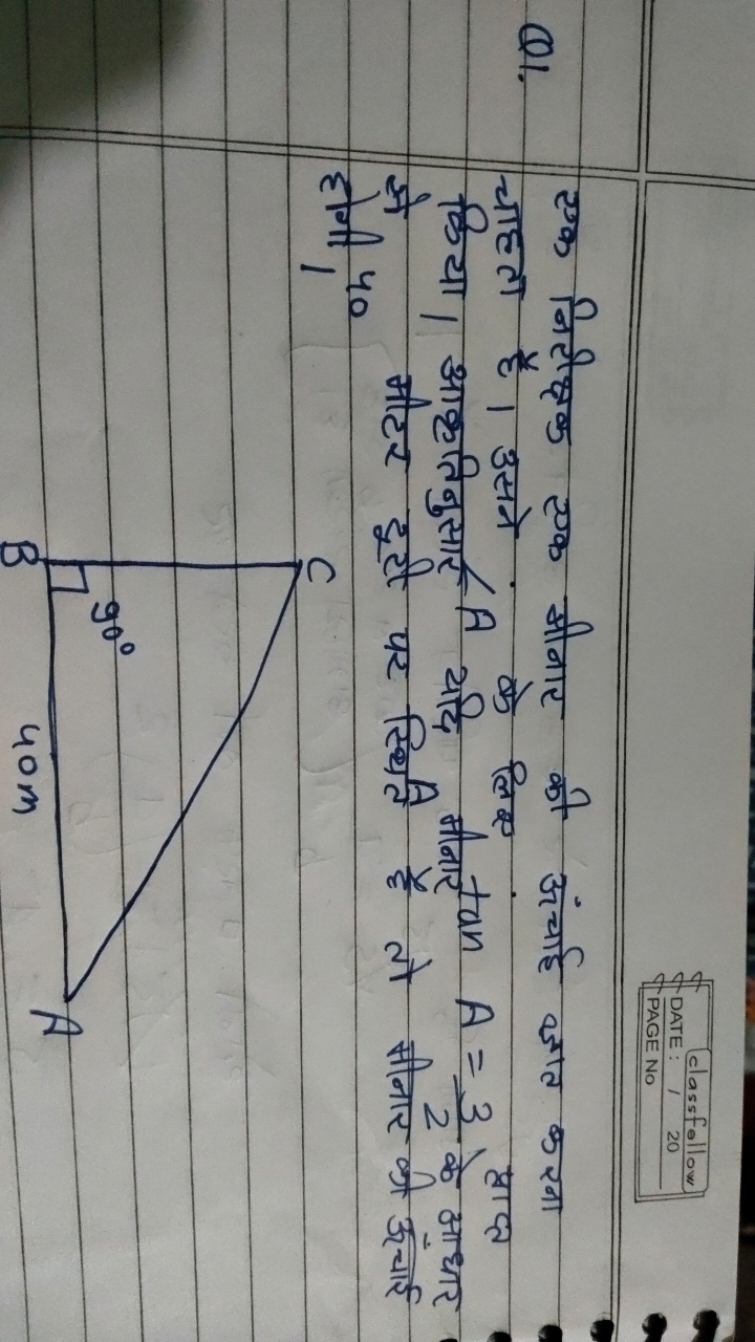 classfellow
DATE: / 20
PAGE No
Q1. एक निरीक्षक एक मीनार की ऊंचाई ज्ञात करना
चाहता है। उसने . के लिए .
∠A tan A = 3/2 प्राप्त
किया। आकृतिनुसार यदि A मीनार के आधार
से 40 मीटर दूरी पर स्थित है तो मीनार की ऊंचाई
होगी।
C
90°
B
40m
A